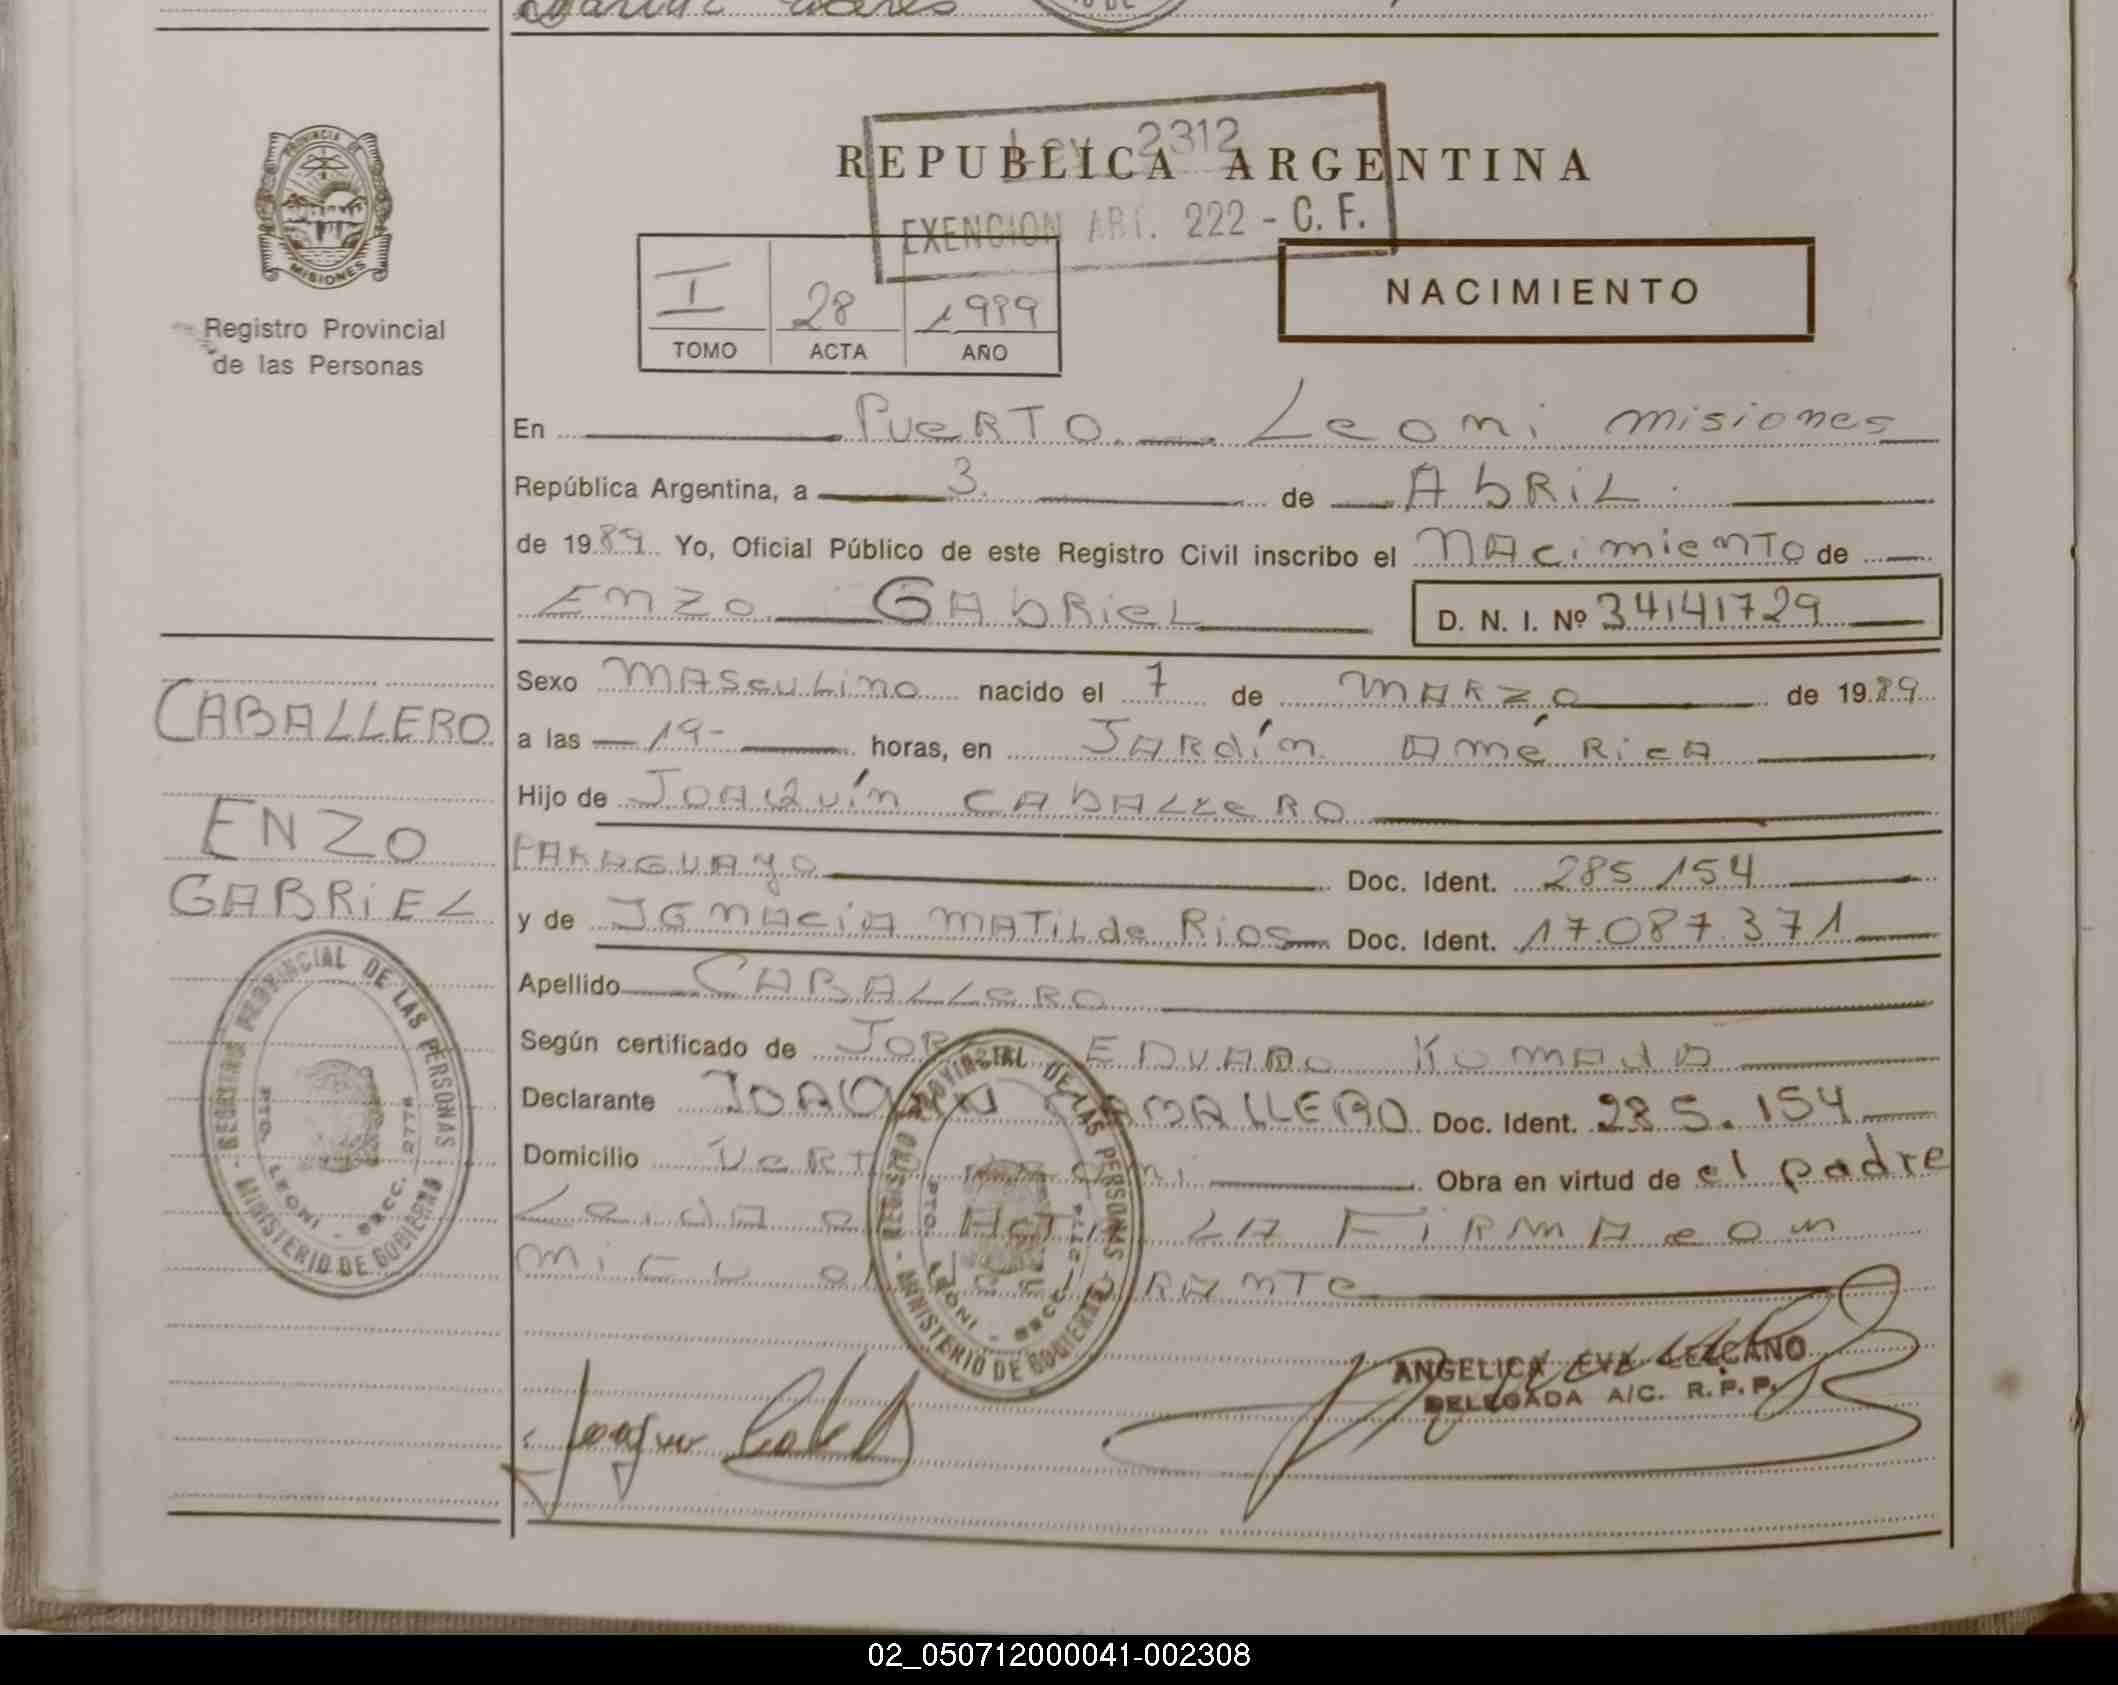 PROVINCIA DE
MISIONES
Registro Provincial
de las Personas
Ley 2312
REPUBLICA ARGENTINA
EXENCION ART. 222 - C. F.
I 28 1989
TOMO ACTA AÑO
NACIMIENTO
En Puerto Leoni misiones
República Argentina, a 3 de Abril
de 1989 Yo, Oficial Público de este Registro Civil inscribo el nacimiento de
Enzo Gabriel D. N. I. Nº 34141729
Sexo masculino nacido el 7 de marzo de 1989
a las 19- horas, en Jardín América
Hijo de Joaquín Caballero
Paraguayo Doc. Ident. 285154
y de Ignacia Matilde Rios Doc. Ident. 17.087.371
Apellido Caballero
Según certificado de Eduardo Kumada
Declarante JOAQUIN CABALLERO Doc. Ident. 285.154
Domicilio Leoni Obra en virtud de el padre
Leida el Acta LA FIRMA con
migo el declarante
CABALLERO
ENZO
GABRIEL
REGISTRO PROVINCIAL DE LAS PERSONAS
PTO. LEONI - SECC. 2778
- MINISTERIO DE GOBIERNO
REGISTRO PROVINCIAL DE LAS PERSONAS
PTO. LEONI - SECC. 2778
- MINISTERIO DE GOBIERNO
Joaquin
ANGELICA EVA LEZCANO
DELEGADA A/C. R. P. P.
02_050712000041-002308